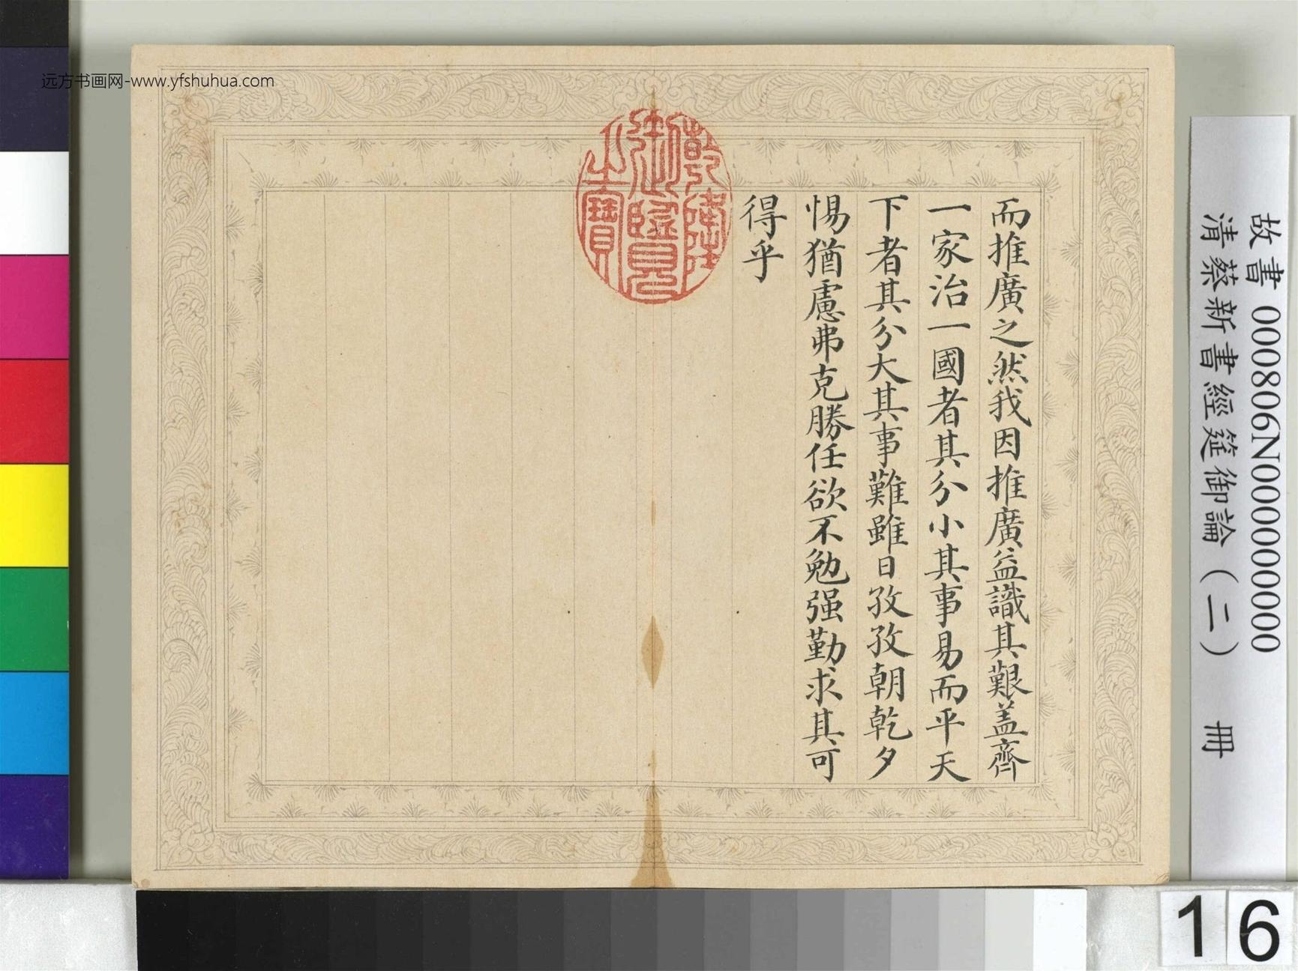 远方书画网-www.yfshuhua.com
而推廣之然我因推廣益識其艱蓋齊
一家治一國者其分小其事易而平天
下者其分大其事難雖日孜孜朝乾夕
惕猶慮弗克勝任欲不勉强勤求其可
得乎
乾隆
御覽
之寶
故書 000806N000000000
清蔡新書經筵御論(二) 冊
16